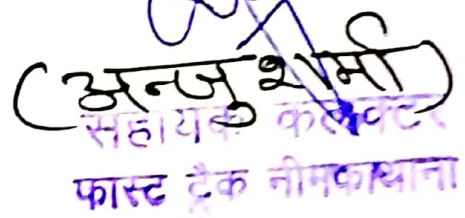 (अन्जु शर्मा)
सहायक कलक्टर
फास्ट ट्रैक नीमकाथाना